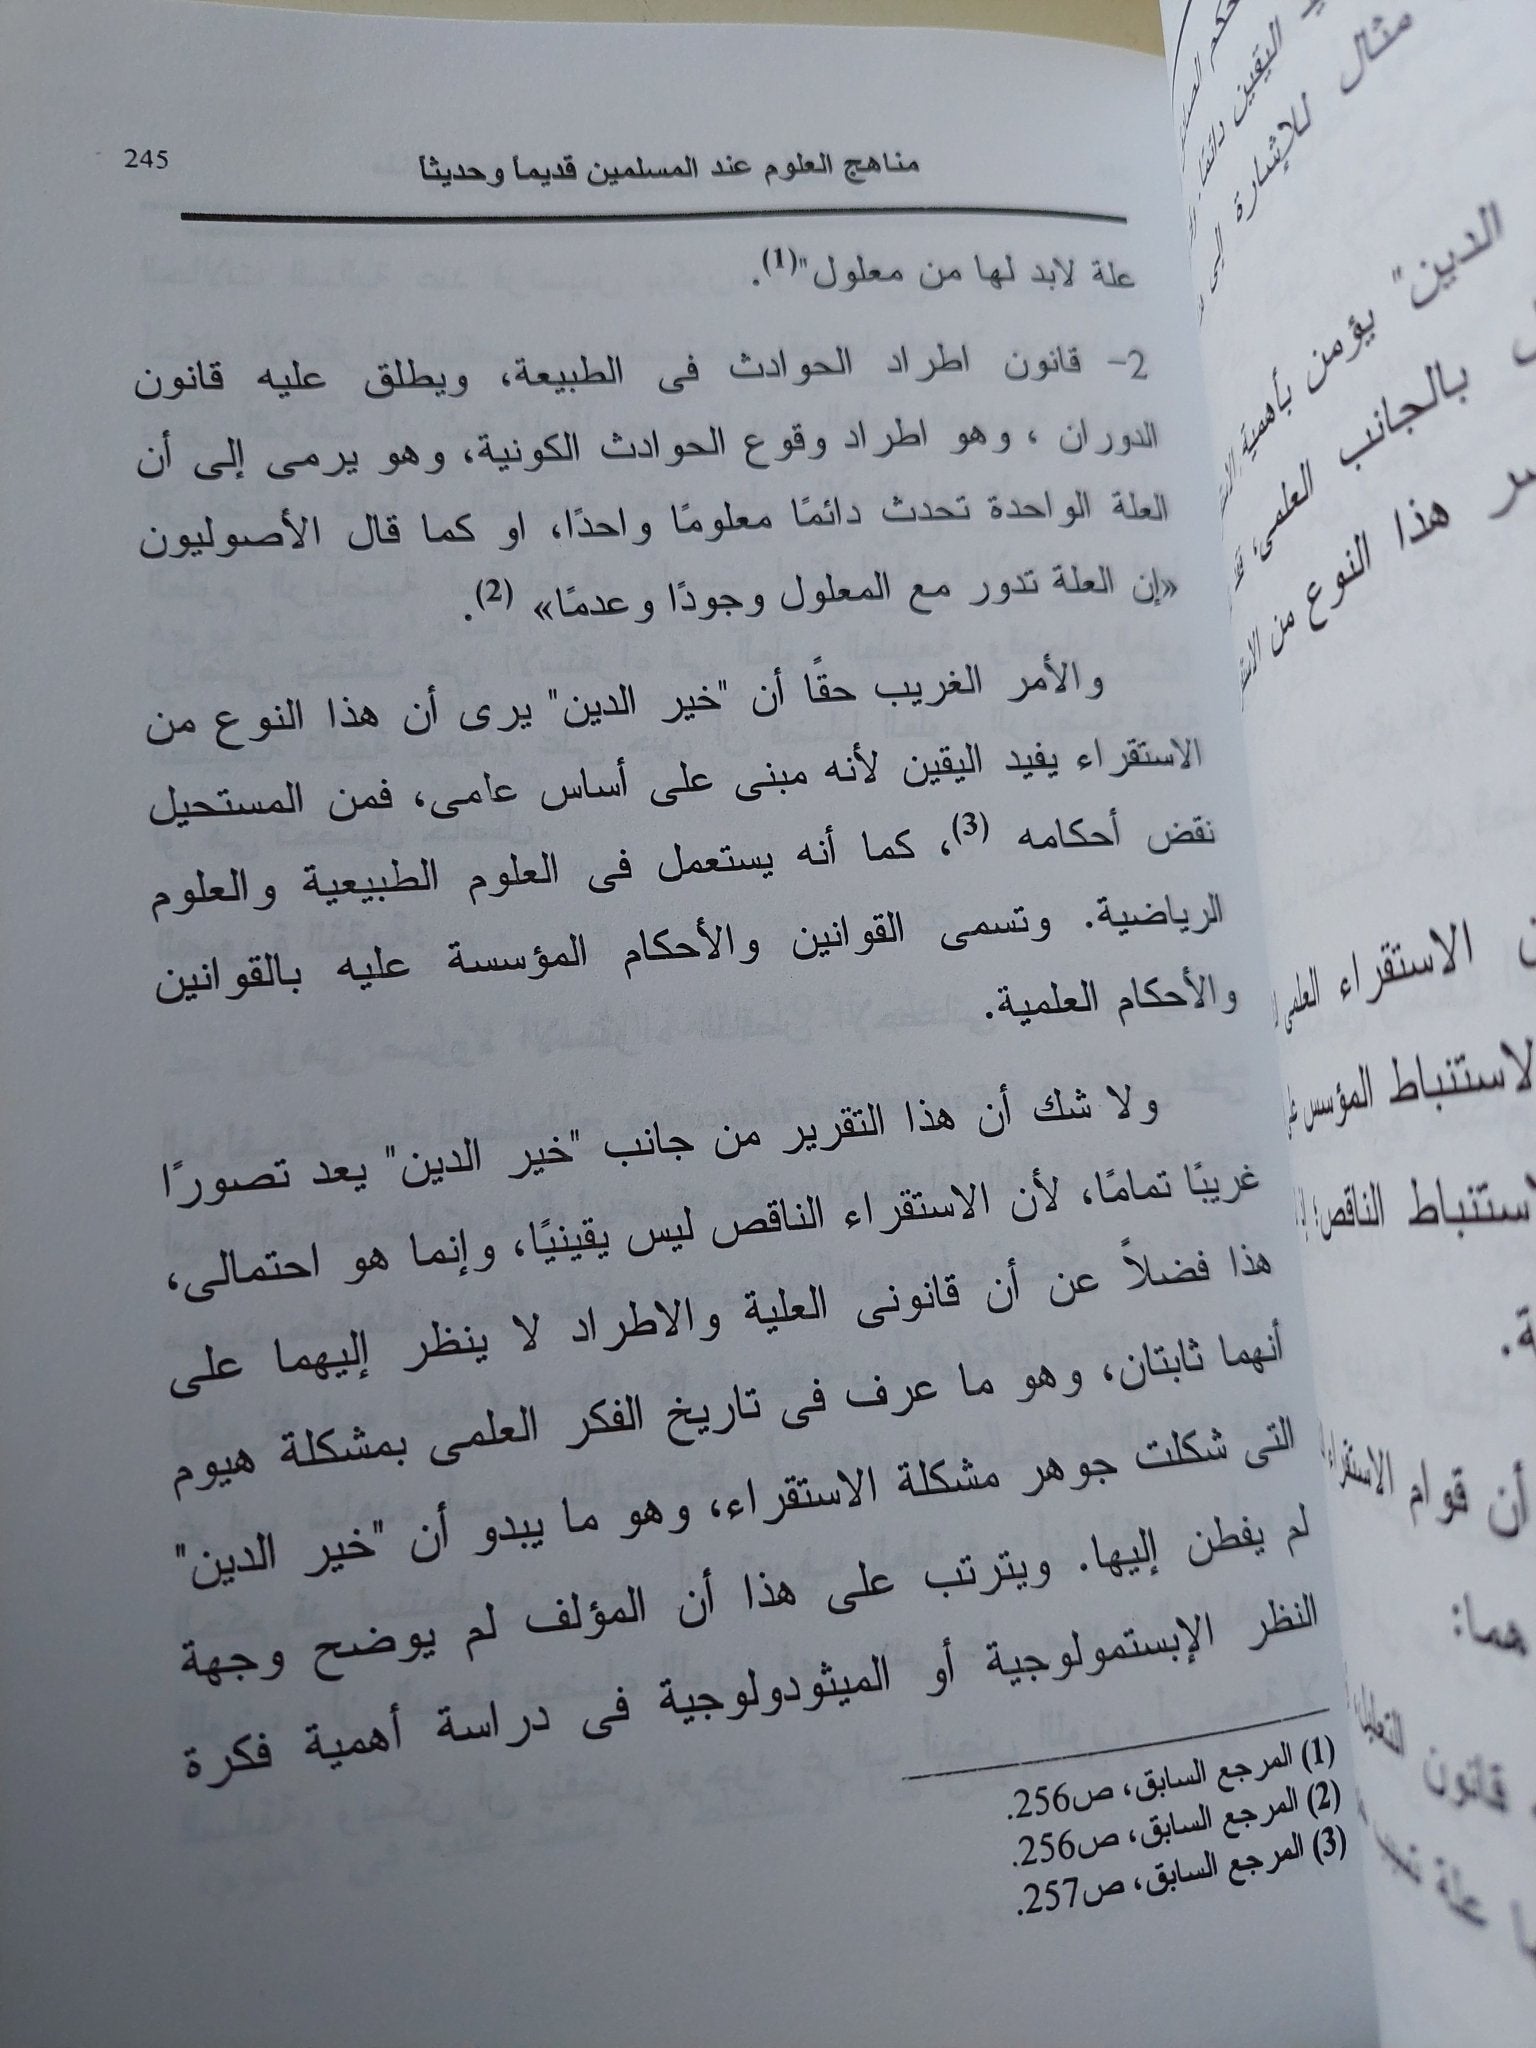 مناهج العلوم عند المسلمين قديماً وحديثاً
245
علة لابد لها من معلول"(1).
2- قانون اطراد الحوادث فى الطبيعة، ويطلق عليه قانون
الدوران ، وهو اطراد وقوع الحوادث الكونية، وهو يرمى إلى أن
العلة الواحدة تحدث دائمًا معلومًا واحدًا، او كما قال الأصوليون
«إن العلة تدور مع المعلول وجودًا وعدمًا» (2).
والأمر الغريب حقًا أن "خير الدين" يرى أن هذا النوع من
الاستقراء يفيد اليقين لأنه مبنى على أساس عامى، فمن المستحيل
نقض أحكامه (3)، كما أنه يستعمل فى العلوم الطبيعية والعلوم
الرياضية. وتسمى القوانين والأحكام المؤسسة عليه بالقوانين
والأحكام العلمية.
ولا شك أن هذا التقرير من جانب "خير الدين" يعد تصورًا
غريبًا تمامًا، لأن الاستقراء الناقص ليس يقينيًا، وإنما هو احتمالى،
هذا فضلاً عن أن قانونى العلية والاطراد لا ينظر إليهما على
أنهما ثابتان، وهو ما عرف فى تاريخ الفكر العلمى بمشكلة هيوم
التى شكلت جوهر مشكلة الاستقراء، وهو ما يبدو أن "خير الدين"
لم يفطن إليها. ويترتب على هذا أن المؤلف لم يوضح وجهة
النظر الإبستمولوجية أو الميثودولوجية فى دراسة أهمية فكرة
(1) المرجع السابق، ص256.
(2) المرجع السابق، ص256.
(3) المرجع السابق، ص257.
اليقين دائمًا
مثال للإشارة إلى
الدين" يؤمن بأهمية
بالجانب العلمى،
هذا النوع من
الاستقراء العلمى
الاستنباط المؤسس
الاستنباط الناقص؛
أن قوام الاستقراء
هما:
قانون التعليل
علة